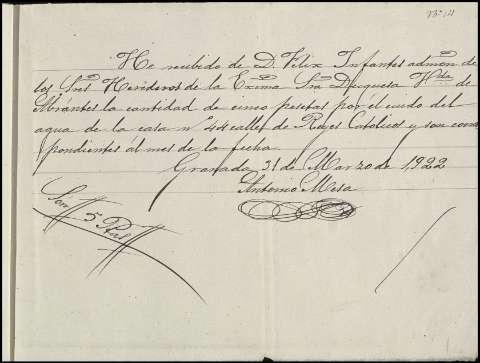 He recibido de D. Felix Infantes admon de
los Sres Herederos de la Excma Sra Duquesa Vda de
Abrantes la cantidad de cinco pesetas por el cuido del
agua de la casa nº 44 calle de Reyes Catolicos y son corres
pondientes al mes de la fecha.
Granada 31 de Marzo de 1,922
Antonio Mesa
Son 5 Ptas